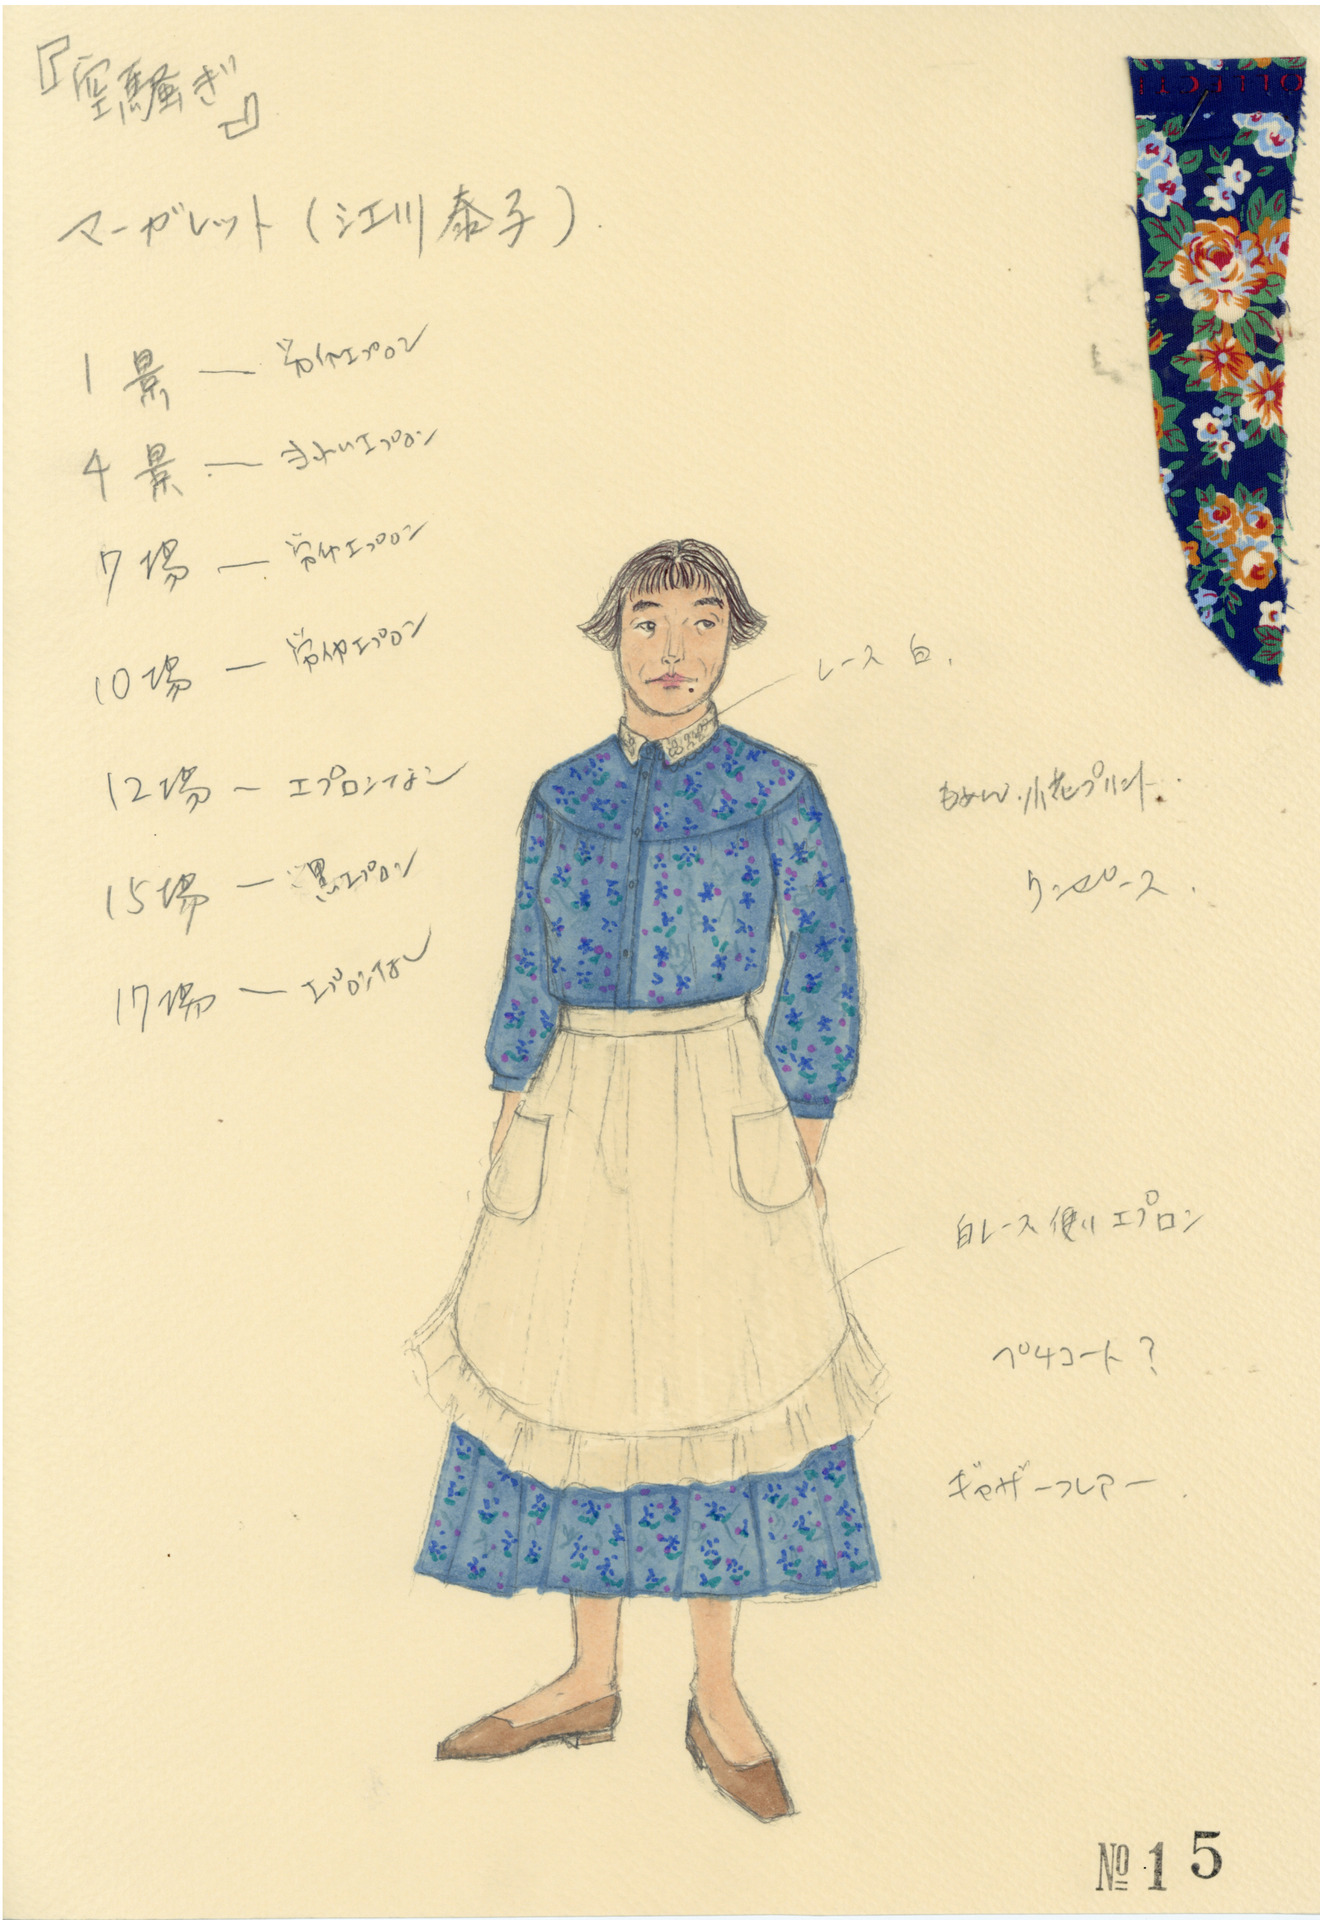 『空騒ぎ』
マーガレット(江川泰子)
1景 — 労作エプロン
4景 — きれいエプロン
7場 — 労作エプロン
10場 — 労作エプロン
12場 — エプロンなし
15場 — 黒エプロン
17場 — エプロンなし
レース 白.
もめん.小花プリント.
ワンピース.
白レース使い エプロン
ペチコート?
ギャザーフレアー.
№15